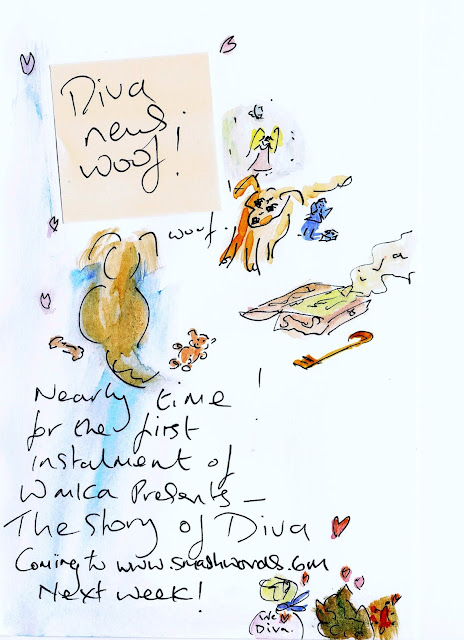 Diva
news
woof!
woof.
Nearly time !
for the first
instalment of
Presents –
The Story of Diva
Coming to www.smashwords.com
Next week!
We
Diva.